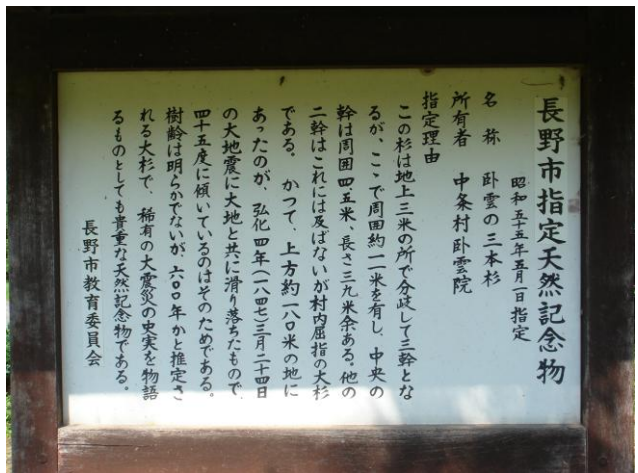 長野市指定天然記念物
昭和五十五年五月一日指定
名称 臥雲の三本杉
所有者 中条村臥雲院
指定理由
この杉は地上三米の所で分岐して三幹とな
るが、こゝで周囲約一一米を有し、中央の
幹は周囲四.五米、長さ三九米余ある。他の
二幹はこれには及ばないが村内屈指の大杉
である。 かつて、上方約一八〇米の地に
あったのが、弘化四年(一八四七)三月二十四日
の大地震に大地と共に滑り落ちたもので、
四十五度に傾いているのはそのためである。
樹齢は明らかでないが、六〇〇年かと推定さ
れる大杉で、稀有の大震災の史実を物語
るものとしても貴重な天然記念物である。
長野市教育委員会